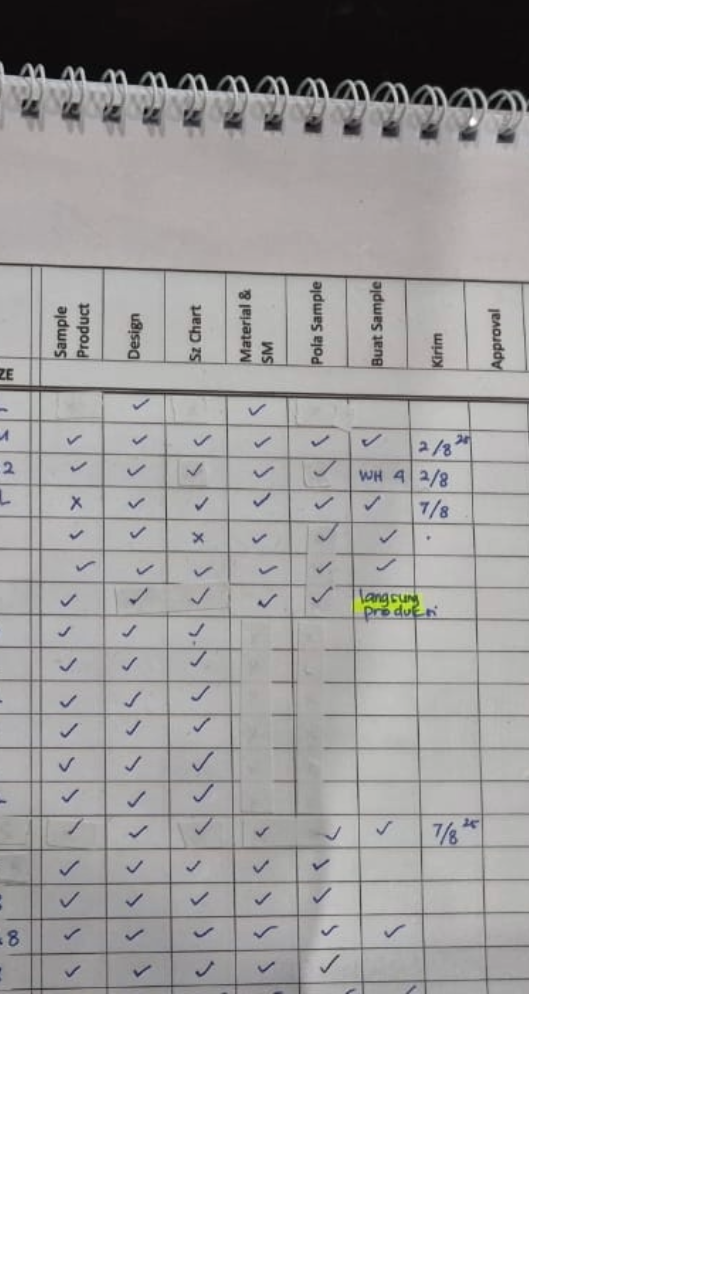 Sample Product
Design
Sz Chart
Material & SM
Pola Sample
Buat Sample
Kirim
Approval
ZE
✓ ✓
✓ ✓ ✓ ✓ ✓ ✓ 2/8 25
2 ✓ ✓ ✓ ✓ ✓ WH 4 2/8
L x ✓ ✓ ✓ ✓ ✓ 7/8
✓ ✓ x ✓ ✓ ✓
✓ ✓ ✓ ✓ ✓ ✓
✓ ✓ ✓ ✓ ✓ langsung
produksi
✓ ✓ ✓
✓ ✓ ✓
✓ ✓ ✓
✓ ✓ ✓
✓ ✓ ✓
✓ ✓ ✓
✓ ✓ ✓ ✓ ✓ ✓ 7/8 25
✓ ✓ ✓ ✓ ✓
✓ ✓ ✓ ✓ ✓
8 ✓ ✓ ✓ ✓ ✓ ✓
✓ ✓ ✓ ✓ ✓